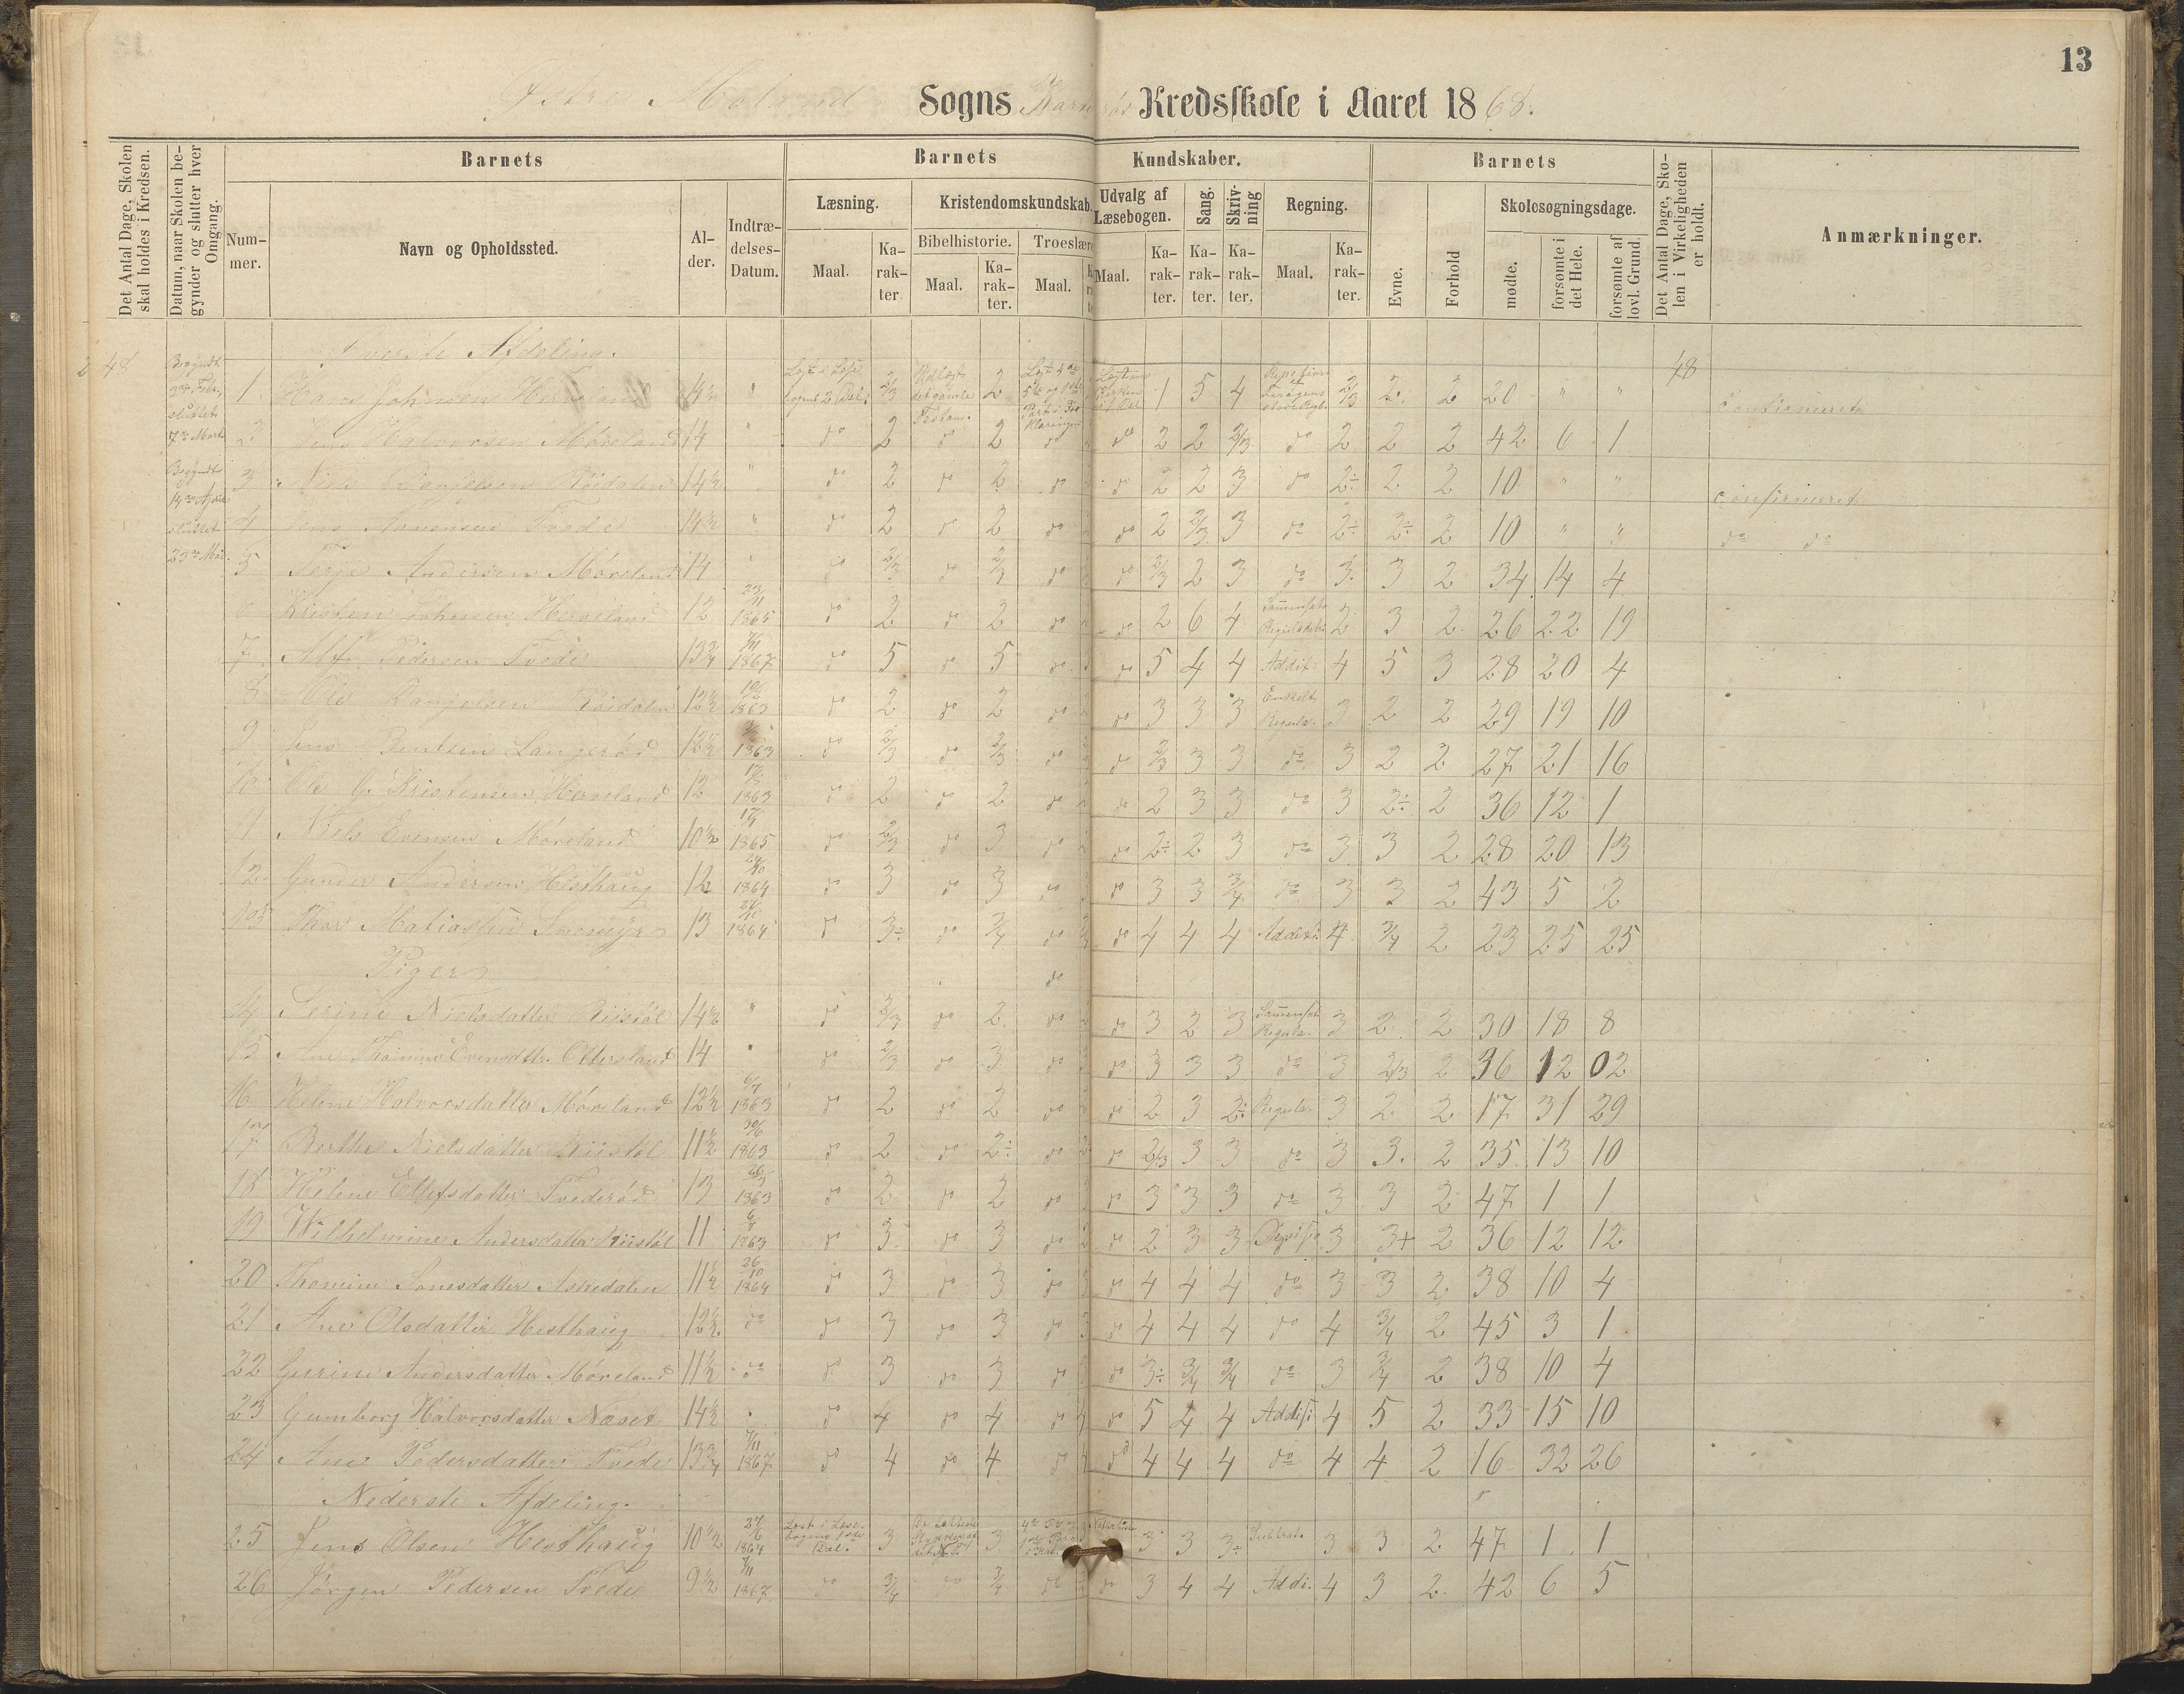 13
Østre Moland Sogns Kredsskole i Aaret 1868.
Det Antal Dage, Skolen skal holdes i Kredsen.
Datum, naar Skolen begynder og slutter hver Omgang.
Barnets
Barnets
Kundskaber.
Barnets
Det Antal Dage, Skolen i Virkeligheden er holdt.
Anmærkninger.
Nummer.
Navn og Opholdssted.
Alder.
Indtrædelses-Datum.
Læsning.
Kristendomskundskab.
Udvalg af Læsebogen.
Sang.
Skrivning
Regning.
Evne.
Forhold
Skolesøgningsdage.
Bibelhistorie.
Troeslære
Maal.
Karakter
Maal.
Karakter.
Maal.
Maal.
Karakter.
Karakter.
Karakter.
Maal.
Karakter.
mødte.
forsømte i det Hele.
forsømte af lovl. Grund.
Øverste Afdeling.
48
Begyndt 3die Febr, sluttet 7de Marts
Begyndt 14de April sluttet 23de Mai
48
1 Hans Johnsen Herveland 14½ " 2/3 2 1 5 4 2/3 2 2 20 " " confirmeret
2 Jens Halvorsen Møreland 14 " do 2 do 2 do do 2 2 2/3 do 2 2 2 42 6 1
3 Niels Danjelsen Røidalen 14½ " do 2 do 2 do do 2 2 3 do 2÷ 2 2 10 " " confirmeret
4 Jens Tvede 14½ " do 2 do 2 do do 2 2/3 3 do 2÷ 2÷ 2 10 " " do do
5 Terje Andersen Møreland 14 " do 2/3 do 2/3 do do 2/3 2 3 do 3 3 2 34 14 4
6 Kristen Johnsen Herveland 12 23/11 1865 do 2 do 2 do do 2 6 4 2 3 2 26 22 19
7 Alf Pedersen Tvede 13¾ 7/11 1867 do 5 do 5 do do 5 4 4 Addit. 4 5 3 28 20 4
8 Ole Danjelsen Røidalen 12½ 1863 do 2 do 2 do do 3 3 3 Enkelt Regula. 3 2 2 29 19 10
9 Jens Bentsen Langerød 12½ 1863 do 2/3 do 2/3 do do 2/3 3 3 do 3 2 2 27 21 16
10 Ole Kristensen Herveland 12 1863 do 2 do 2 do do 2 3 3 do 3 2÷ 2 36 12 1
11 Niels Evensen Møreland 10½ 1865 do 2/3 do 3 do do 2÷ 2 3 do 3 3 2 28 20 13
12 Gunder Andersen Hesthaug 12 1864 do 3 do 3 do do 3 3 3/4 do 3 3 2 43 5 2
13 Thor Matiassen 13 1864 do 3÷ do 3/4 do do 4 4 4 Additi. 4 3/4 2 23 25 25
Piger
do
14 Terine Nielsdatter Riistøl 14½ " do 2/3 do 2 do do 3 2 3 Sammensat Regula. 3 2 2 30 18 8
15 Ane Thomine Evensdtr. Ottersland 14 " do 2/3 do 3 do do 3 3 3 do 3 2/3 2 36 12 02
16 Helene Halvorsdatter Møreland 12½ 1863 do 2 do 2 do do 2 3 2÷ Regula. 3 2 2 17 31 29
17 Berthe Nielsdatter Riistøl 11½ 30/6 1863 do 2 do 2÷ do do 2/3 3 3 do 3 3 2 35 13 10
18 Helene Ellefsdatter Tvederød 13 1863 do 2 do 2 do do 3 3 3 do 3 3 2 47 1 1
19 Wilhelmine Andersdatter Riistøl 11 1863 do 3 do 3 do do 2 3 3 3 3+ 2 36 12 12
20 Thomine Sonesdatter Askedalen 11½ 26/10 1864 do 3 do 3 do do 4 4 4 do 3 3 2 38 10 4
21 Ane Olsdatter Hesthaug 12½ do do 3 do 3 do do 4 4 4 do 4 3/4 2 45 3 1
22 Gurine Andersdatter Møreland 11½ do do 3 do 3 do do 3÷ 3/4 3/4 do 3 3/4 2 38 10 4
23 Gumborg Halvorsdatter Næset 14½ " do 4 do 4 do do 5 4 4 Additi 4 5 2 33 15 10
24 Ane Pedersdatter Tvede 13¾ 7/11 1867 do 4 do 4 do do 4 4 4 do 4 4 2 16 32 26
Nederste Afdeling.
25 Jens Olsen Hesthaug 10½ 27/6 1864 Læst i Læsebogens 1ste Del. 3 3 3 3 3÷ Subtrat. 3 3 2 47 1 1
26 Jørgen Pedersen Tvede 9½ 7/11 1867 do 3/4 do 3/4 do do 3 4 4 Addi. 4 3 2 42 6 5